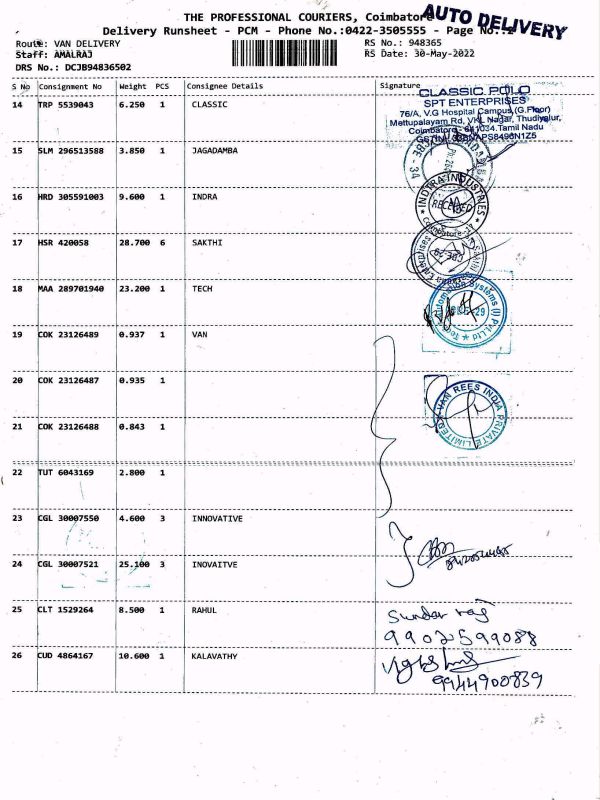 THE PROFESSIONAL COURIERS, Coimbatore
AUTO DELIVERY
Delivery Runsheet - PCM - Phone No.:0422-3505555 - Page No.:2
Route: VAN DELIVERY
RS No.: 948365
Staff: AMALRAJ
RS Date: 30-May-2022
DRS No.: DCJB94836502
S No Consignment No Weight PCS Consignee Details Signature
14 TRP 5539043 6.250 1 CLASSIC
CLASSIC POLO
SPT ENTERPRISES
76/A, V.G Hospital Campus,(G.Floor)
Mettupalayam Rd, VKL Nagar, Thudiyalur,
Coimbatore - 641034.Tamil Nadu
15 SLM 296513588 3.850 1 JAGADAMBA
16 HRD 305591003 9.600 1 INDRA
INDTRA INDUSTRIES
RECEIVED
Coimbatore-17
17 HSR 420058 28.700 6 SAKTHI
18 MAA 289701940 23.200 1 TECH
Automation Systems (I) Pvt Ltd
19 COK 23126489 0.937 1 VAN
20 COK 23126487 0.935 1
VAN REES INDIA PRIVATE LIMITED
21 COK 23126488 0.843 1
22 TUT 6043169 2.800 1
23 CGL 30007550 4.600 3 INNOVATIVE
24 CGL 30007521 25.100 3 INOVAITVE
25 CLT 1529264 8.500 1 RAHUL
Sundar raj
9902599088
26 CUD 4864167 10.600 1 KALAVATHY
9944900839